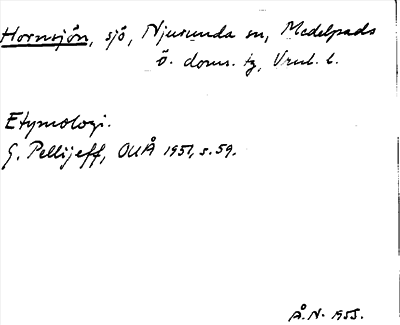 Hornsjön, sjö, Njurunda sn, Medelpads
ö. doms. tg, Vrnl. l.
Etymologi.
G. Pellijeff, OUÅ 1951, s. 59.
Å. N. 1953.